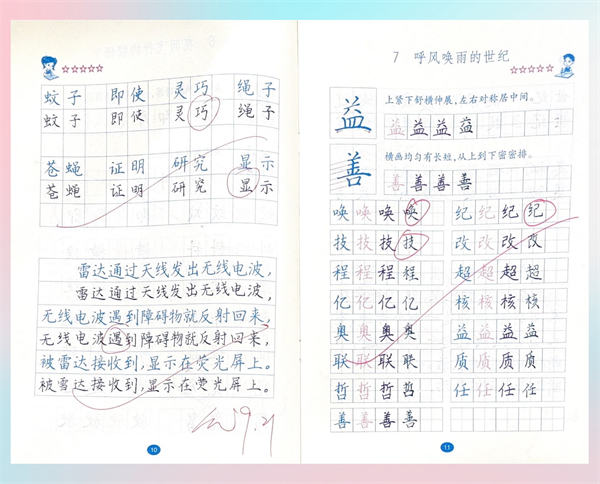 蚊子 即使 灵巧 绳子
蚊子 即使 灵巧 绳子
苍蝇 证明 研究 显示
苍蝇 证明 研究 显示
雷达通过天线发出无线电波，
雷达通过天线发出无线电波，
无线电波遇到障碍物就反射回来，
无线电波遇到障碍物就反射回来，
被雷达接收到，显示在荧光屏上。
被雷达接收到，显示在荧光屏上。
9.21
10
7 呼风唤雨的世纪
益 上紧下舒横伸展，左右对称居中间。
益 益 益 益
善 横画均匀有长短，从上到下密密排。
善 善 善 善
唤 唤 唤 唤 纪 纪 纪 纪
技 技 技 技 改 改 改 改
程 程 程 程 超 超 超 超
亿 亿 亿 亿 核 核 核 核
奥 奥 奥 奥 益 益 益 益
联 联 联 联 质 质 质 质
哲 哲 哲 哲 任 任 任 任
善 善 善 善
11